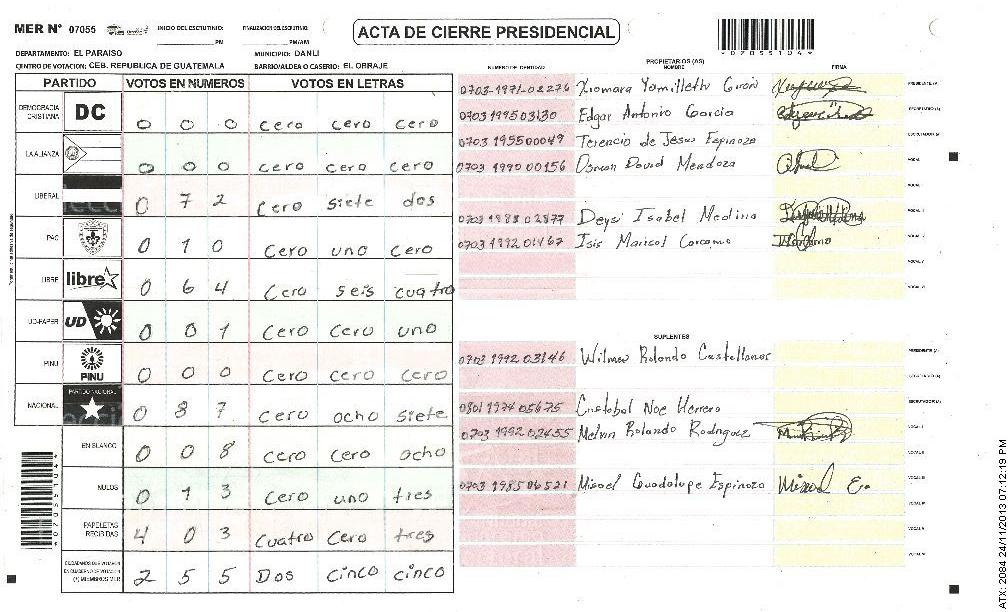 MER Nº 07055
INICIO DEL ESCRUTINIO: PM
FINALIZACION DEL ESCRUTINIO: PM/AM
ACTA DE CIERRE PRESIDENCIAL
*07055104*
DEPARTAMENTO: EL PARAISO
MUNICIPIO: DANLI
CENTRO DE VOTACION: CEB. REPUBLICA DE GUATEMALA
BARRIO/ALDEA O CASERIO: EL ORRAJE
PARTIDO VOTOS EN NUMEROS VOTOS EN LETRAS
DEMOCRACIA CRISTIANA DC 0 0 0 cero cero cero
LA ALIANZA 0 0 0 cero cero cero
LIBERAL 0 7 2 cero siete dos
PAC 0 1 0 cero uno cero
LIBRE libre 0 6 4 cero seis cuatro
UD-FAPER UD 0 0 1 cero cero uno
PINU PINU 0 0 0 cero cero cero
NACIONAL PARTIDO NACIONAL 0 8 7 cero ocho siete
EN BLANCO 0 0 8 cero cero ocho
NULOS 0 1 3 cero uno tres
PAPELETAS RECIBIDAS 4 0 3 cuatro cero tres
CIUDADANOS QUE VOTARON EN CUADERNO DE VOTACION (+) MIEMBROS MER 2 5 5 Dos cinco cinco
*07055104*
NUMERO DE IDENTIDAD PROPIETARIOS (AS) NOMBRE FIRMA
0703-1971-02276 Xiomara Yamilleth Giron PRESIDENTE (A)
0703 1995 03130 Edgar Antonio Garcia SECRETARIO (A)
0703 1955 00049 Terencio de Jesus Espinoza ESCRUTADOR (A)
0703 1990 00156 Osman David Mendoza VOCAL I
VOCAL II
0703 1988 02877 Deysi Isabel Medina VOCAL III
0703 1992 01467 Isis Marisol Carcamo VOCAL IV
VOCAL V
VOCAL VI
SUPLENTES
0703 1992 03146 Wilmer Rolando Castellanos PRESIDENTE (A)
SECRETARIO (A)
0801 1974 05675 Cristobal Noe Herrera ESCRUTADOR (A)
0703 1992 02455 Melvin Rolando Rodriguez VOCAL I
VOCAL II
0703 1985 06521 Misael Guadalupe Espinoza Misael E. VOCAL III
VOCAL IV
VOCAL V
VOCAL VI
ATX: 2084 24/11/2013 07:12:19 PM